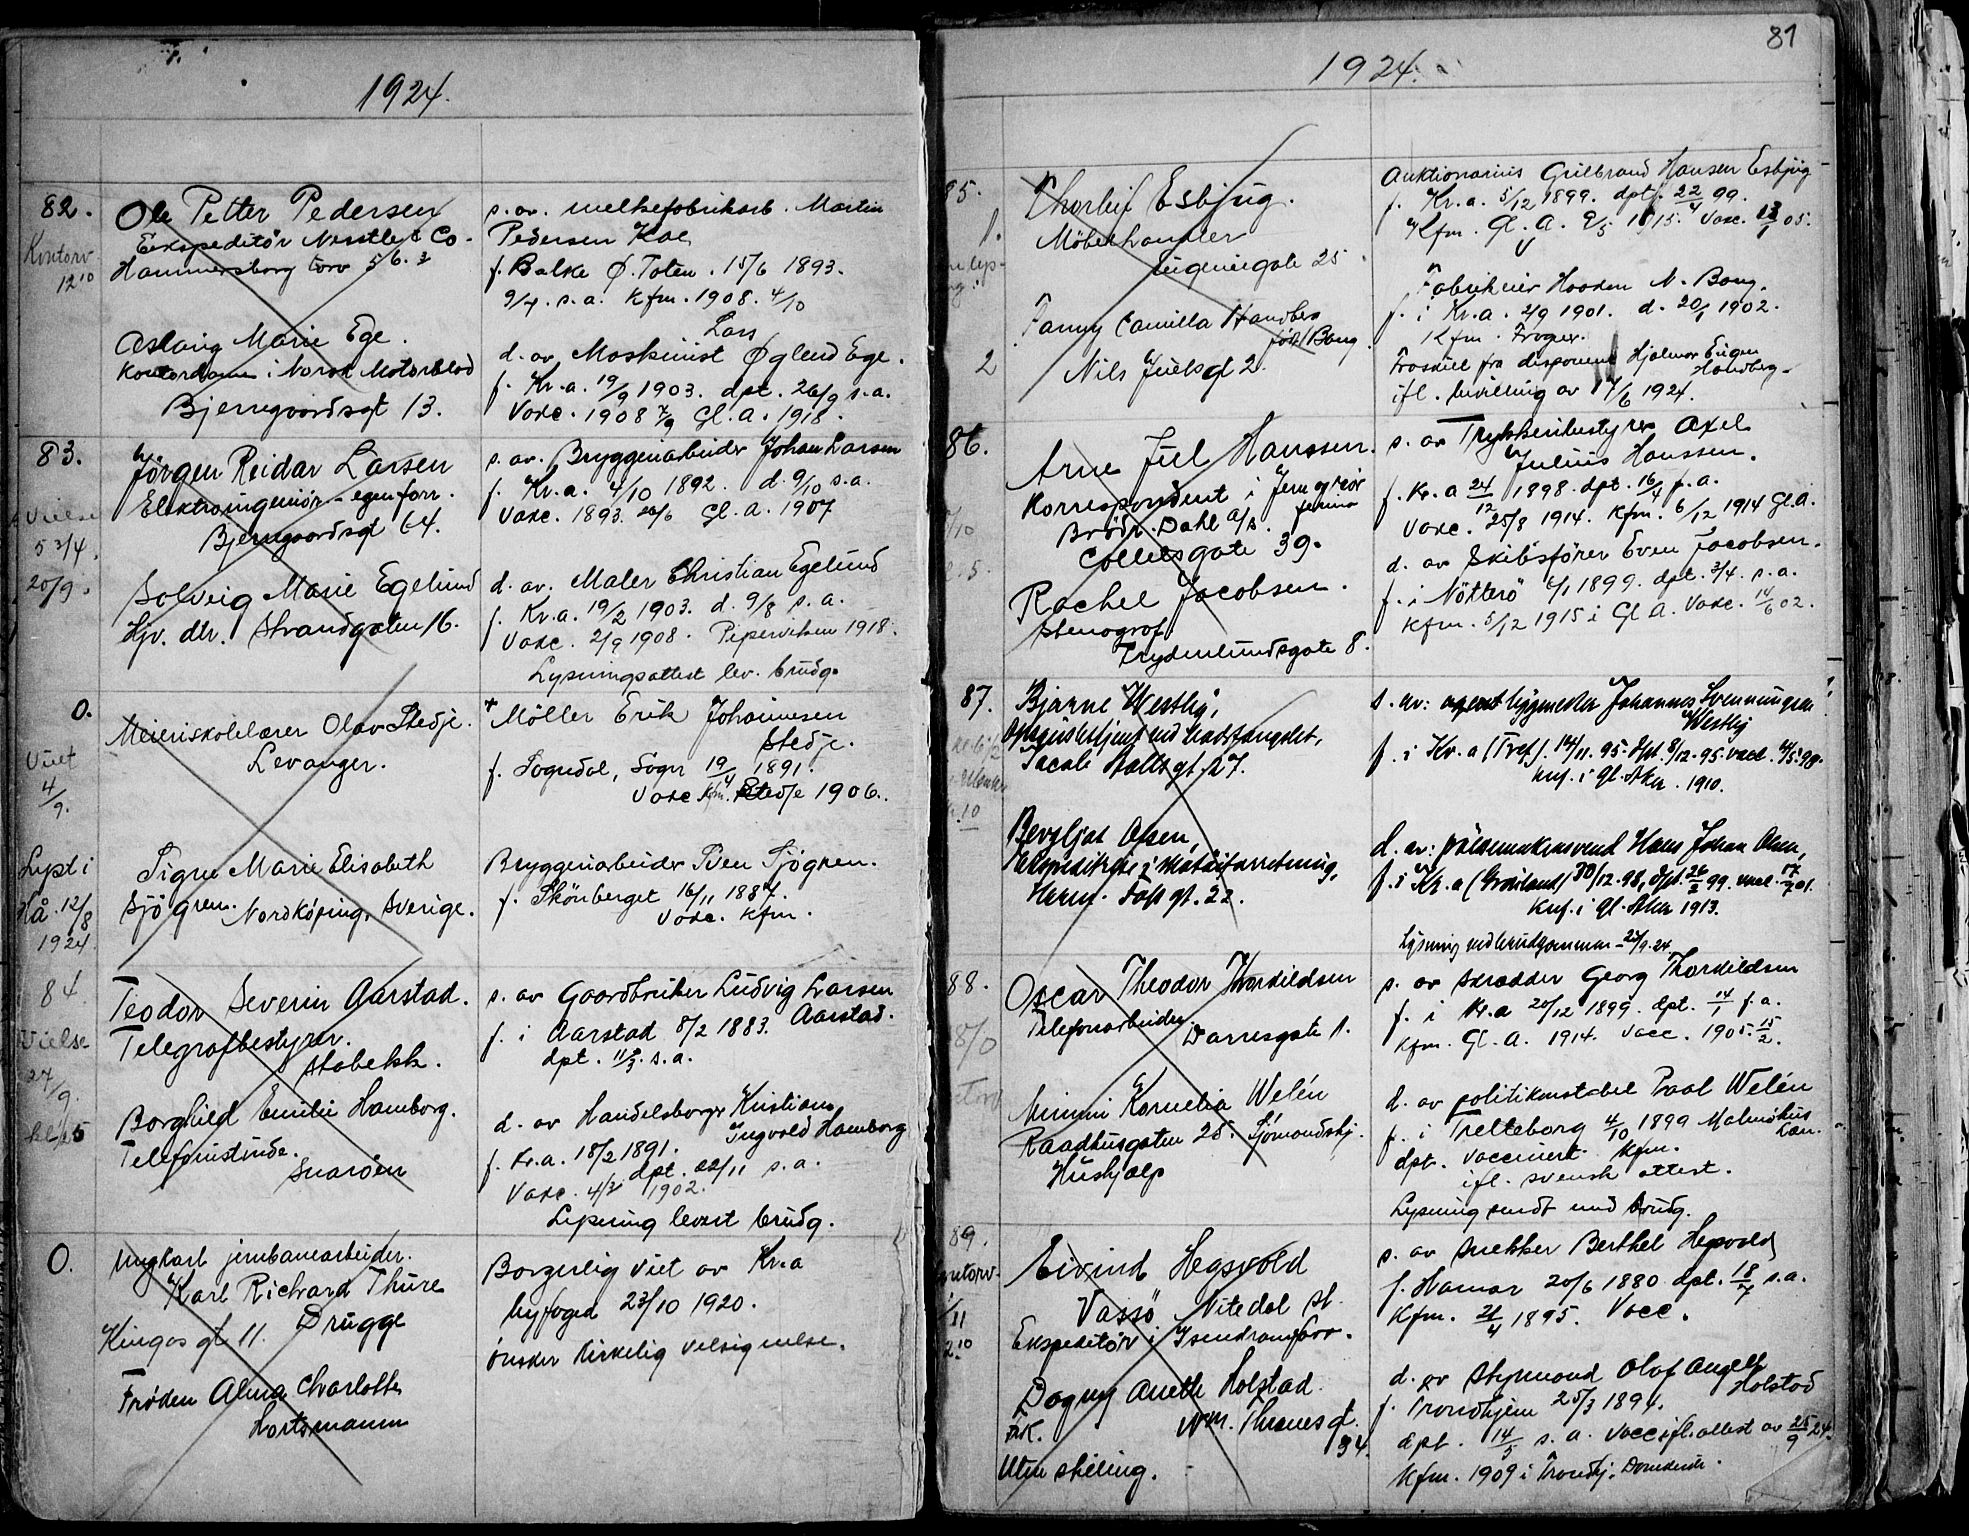 1924.
82.
Kontorv.
12¹⁰
Ole Petter Pedersen
Ekspeditör Nesstle & Co.
Hammersborg torv 5/6. 3
s. av. melkefabrikarb. Martin
Pedersen
f. Balke Ø. Toten. 15/6 1893.
9/7. s.a. Kfm. 1908. 4/10
Aslaug Marie Ege.
Kontordame i Norsk Motorblad
Bjerregaardsgt 13.
Lars
d. av. Maskinist Øglend Ege.
f. Kr.a. 19/9 1903. dpt. 26/9 s.a.
Vaxc. 1908 7/9 Gl. a. 1918.
83.
Vielse
5 3/4.
20/9.
Jörgen Reidar Larsen
Elektroingeniör - egen forr.
Bjerregaardsgt 64.
s. av. Bryggeriarbeider Johan Larsen
f. Kr.a. 4/10 1892. d. 9/10 s.a.
Vaxc. 1893. 26/6 Gl. a. 1907
Solveig Marie Egelund
Hjv. dtr. Strandgaten 16.
d. av. Maler Christian Egelund
f. Kr.a. 19/2 1903. d. 9/8 s.a.
Vaxc. 2/9 1908. Piperviken 1918.
Lysningsattest lev. brudg.
0.
Viet
4/9.
Meieriskolelærer Olav Stedje.
Levanger.
Möller Erik Johannesen
Stedje.
f. Sogndal, Sogn 19/4 1891.
Vaxc Kfm. Stedje 1906.
Lyst i
12/8
1924
Signe Marie Elisabeth
Sjögren. Nordköping, Sverige.
Bryggeriarbeider Sven Sjögren.
f. Skönberget 16/11 1887.
Vaxc. Kfm.
84
Vielse
27/9.
kl. 5
Teodor Severin Aarstad.
Telegrafbestyrer.
Stabekk.
s. av Gaardbruker Ludvig Larsen
Aarstad.
f. i Aarstad 8/2 1883.
dpt. 11/3. s.a.
Borghild Emilie Hamborg.
Telefonistinde.
Snaröen
d. av Handelsborger Kristian
Ingvald Hamborg
f. Kr.a. 18/2 1891.
dpt. 22/11 s.a.
Vaxc. 4/3 1902.
Lysning levert brudg.
0.
Ungkarl jernbanearbeider.
Karl Richard Thure
Drugge
Kingos gt 11.
Borgerlig viet av Kr.a
byfoged 23/10 1920.
önsker kirkelig velsignelse.
Fröken Alma Charlotte
Hortsmann
81
1924.
85.
1.
Thorleif Esbjug.
Möbelhandler
Eugeniegate 25.
Auktionarius Gulbrand Hansen Esbjug
f. Kr.a. 5/12 1899. dpt. 22/4 99.
Kfm. Gl. A. 9/5 1915. Vaxc. 05.
2
Fanny Camilla Handberg
född Bang
Nils Juelsgt 2.
Fabrikeier Haaden N. Bang.
f. i Kr.a. 2/9 1901. d. 20/1 1902.
Kfm. Frogner.
Fraskilt fra disponent Hjalmar Eugen
Handberg.
ifl. bevilling av 17/6 1924.
86.
Arne Juel Hanssen.
Korrespondent i Jern
Brödr. Dahl a/s.
Colletsgate 39.
s. av Trykkeribestyrer Axel
Julius Hanssen.
f. Kr.a 24/12 1898. dpt. 16/4 f.a.
Vaxc. 25/8 1914. Kfm. 6/12 1914 Gl.a.
Rachel Jacobsen.
Stenograf
Frydenlundsgate 8.
d. av Skibsförer Even Jacobsen.
f. i Nötterö 6/1 1899. dpt. 3/4. s.a.
Kfm. 5/12 1915 i Gl A. Vaxc. 14/6 02.
87.
Bjarne Westlij,
Opsynsbetjent ved Bodsfængslet.
Jacob Aallsgt. 27.
s. av: agent bygmester Johannes Svenningsen
Westlij
f. i Kr.a (Tref). 14/11. 95. dpt. 8/12. 95. vacc. 4/5. 98.
knf. i Gl. Aker. 1910.
Bergljot Olsen,
Ekspeditrise i Manufakturforretning,
Herm. Foss gt. 22.
d. av: pölsemakersvend Hans Johan Olsen,
f. i Kr.a (Grönland) 30/12. 98, dpt. 26/2 99. vacc. 01.
Knf. i Gl. Aker 1913.
Lysning ved brudgommen - 23/9. 24.
88.
Oscar Theodor Thorkildsen
Telefonarbeider
Darresgate 1.
s. av Skrædder Georg Thorkildsen
f. i Kr.a 20/12 1899. dpt. 14/1 f.a.
Kfm. Gl. A. 1914. Vacc. 1905. 15/2.
Mimmi Kornelia Welén
Raadhusgaten 25. Sjömandshj.
Hushjælp
d. av politikonstabel Paal Welén
f. i Trelleborg 4/10 1899 Malmöhus
Län.
dpt. Vaccinert. Kfm.
ifl. svensk attest.
Lysning sendt med brudg.
89.
Kontorv.
Eivind Hegsvold
Vassö, Nitedal st.
Ekspeditör i
s. av Snekker Berthel Hegsvold
f. Hamar 20/6 1880 dpt. 18/7 s.a.
Kfm. 21/4 1895. Vacc.
Dagny Anette Holstad.
Wm. Thranes gt.
34.
Uten stilling.
d. av Styrmand Olof August
Holstad
f. Trondhjem 25/3 1894.
dpt. 14/5 s.a. Vacc ifl. attest av 25/9 24.
Kfm. 1909 i Trondhj. Domkirke.